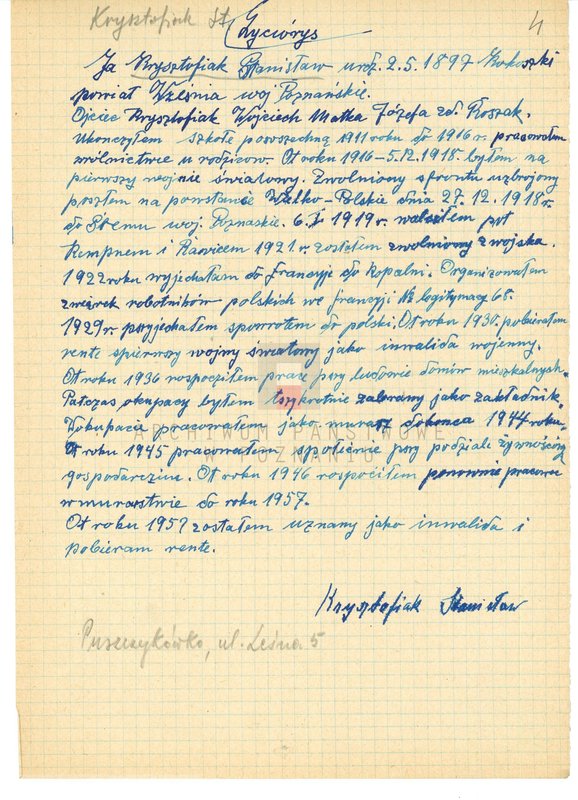 Krysztofiak St
4
Życiórys
Ja Krysztofiak Stanisław urż. 2.5.1897 Kokoszki
powiat Wżeśnia woj Poznańskie.
Ojciec Krysztofiak Wojciech Matka Józefa zd. Roszak.
Ukonczyłem szkołe powszechną 1911 roku do 1916 r. pracowałem
wrolnictwie u rodzicow. Ot roku 1916-5.12.1918. byłem na
pierwszy wojnie światowy. Zwolniony sfrontu uzbrojony
poszłem na powstanie Wielko-Polskie dnia 27.12.1918 r.
do Śremu woj. Poznaskie. 6.I 1919 r. walczłem pot
Kempnem i Rawicem 1921 r. zostałem zwolniony z wojska.
1922 roku wyjechałem do Francyje do kopalni. Organizowałem
zwiąrek robotników polskich we francyji Nr legitymacy 68.
1929 r. przyjechałem spowrotem do polski. Ot roku 1930. pobierałem
rente spierwszy wojny światowy jako inwalida wojenny.
Ot roku 1936 rospocziłem prace przy budowie domów mieszkalnych.
Patczas okupacy byłem trzykrotnie zabrany jako zakładnik.
Wokupacie pracowałem jako murasz dokonca 1944 roku.
Ot roku 1945 pracowałem społecznie przy podziale żywnościo
gospodarczim. Ot roku 1946 rospoćiłem ponownie pracowa
w murarstwie do roku 1957.
Ot roku 1957 zostałem uznany jako inwalida i
pobieram rente.
Krysztofiak Stanisław
Puszczykówko, ul. Leśna 5
ARCHIWUM PAŃSTWOWE
POZNAŃ